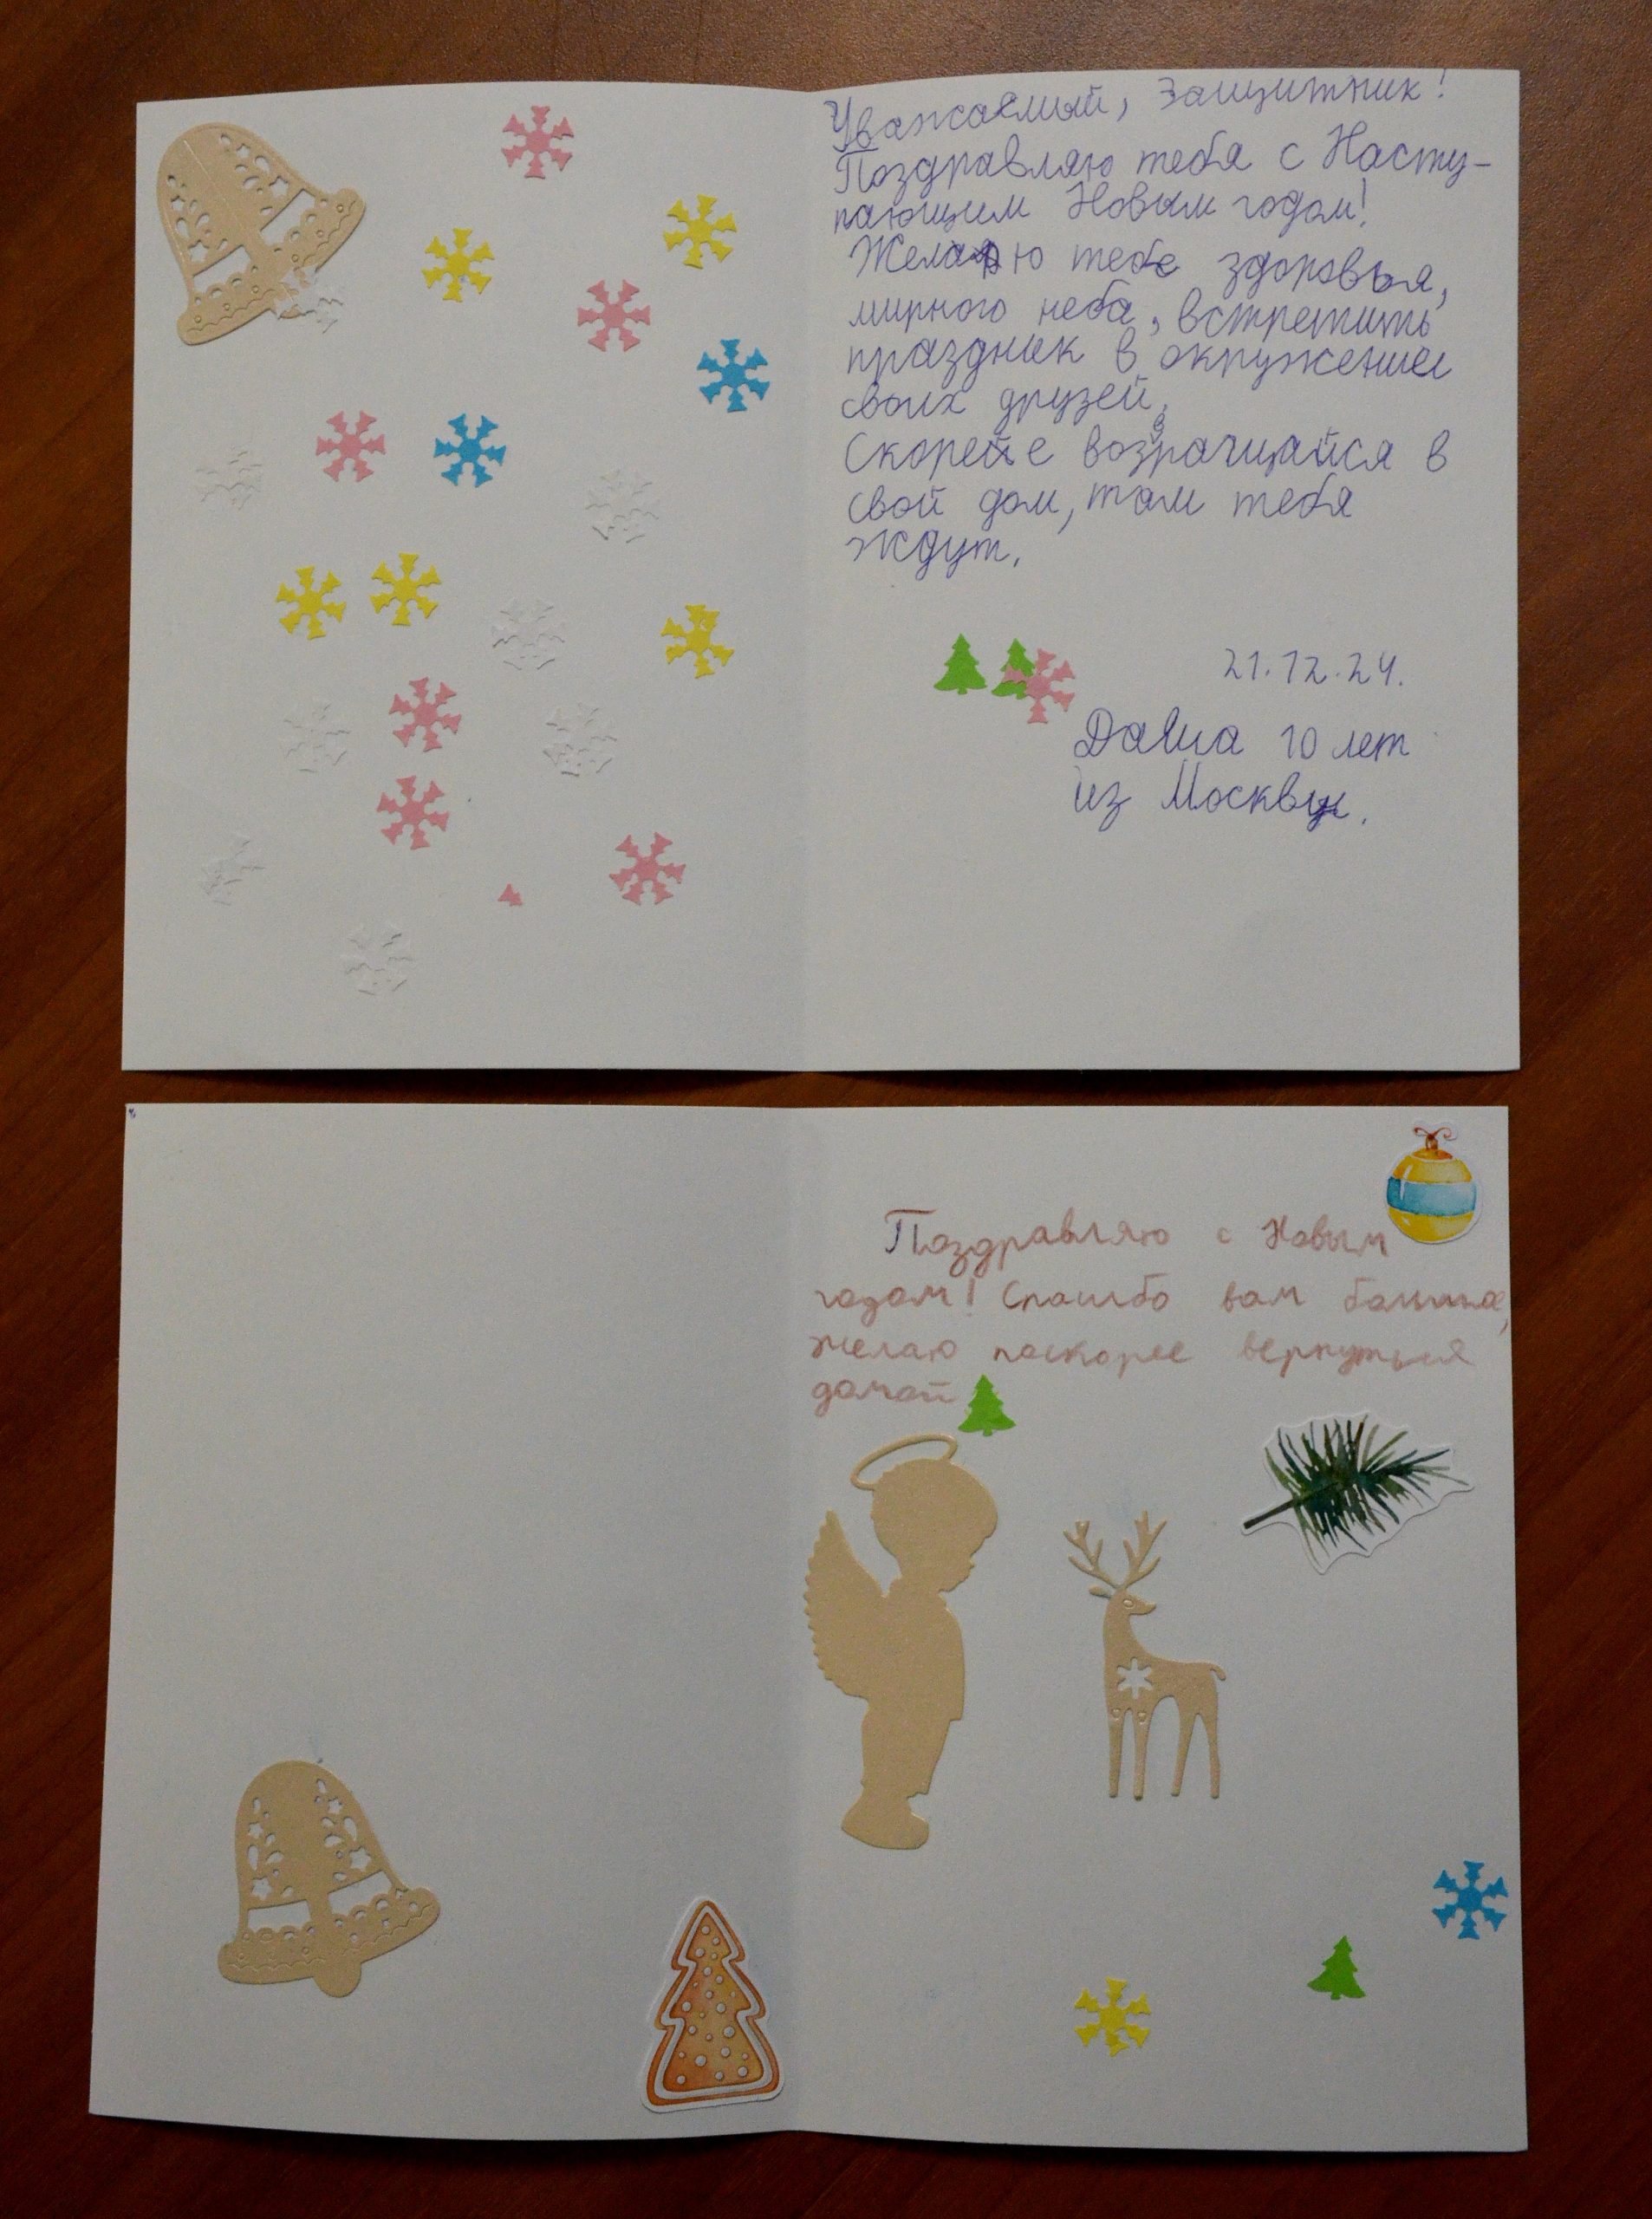 Уважаемый, Защитник!
Поздравляю тебя с Насту-
пающим Новым годом!
Желаю тебе здоровья,
мирного неба, встретить
праздник в окружение
своих друзей,
Скорейе возвращайся в
свой дом, там тебя
ждут.
21.12.24.
Даша 10 лет
из Москвы.
Поздравляю с Новым
годом! Спасибо вам большое,
желаю поскорее вернуться
домой